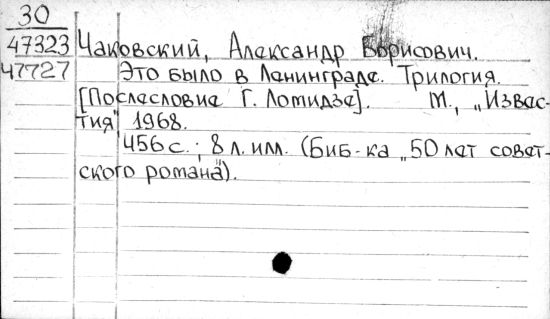 30
47323 Чаковский, Александр Борисович.
47727 Это было в Ленинграде. Трилогия.
[Послесловие Г. Ломидзе]. М., „Извес-
тия" 1968.
456 с.; 8 л. илл. (Биб-ка „50 лет совет-
ского романа").